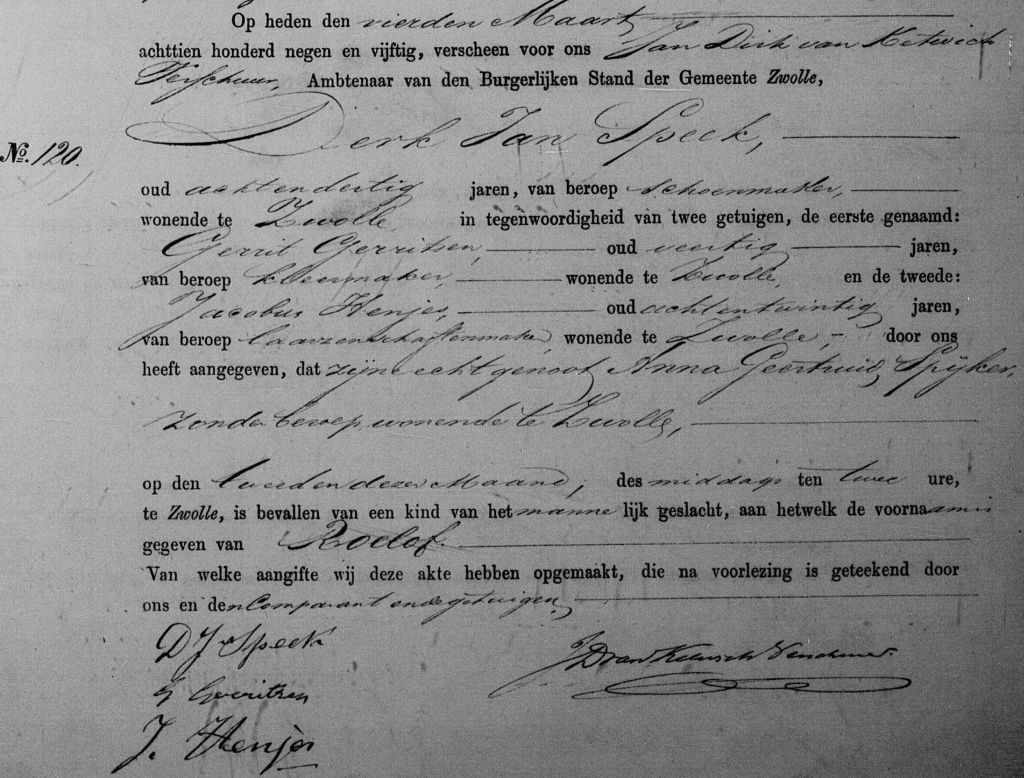 Op heden den vierden Maart
achttien honderd negen en vijftig, verscheen voor ons Jan Dirk van Ketwich
Verschuur, Ambtenaar van den Burgerlijken Stand der Gemeente Zwolle,
Derk Jan Speck,
No. 120.
oud acht en dertig jaren, van beroep schoenmaker,
wonende te Zwolle, in tegenwoordigheid van twee getuigen, de eerste genaamd:
Gerrit Gerritsen, oud veertig jaren,
van beroep kleermaker, wonende te Zwolle, en de tweede:
Jacobus Henjes, oud achtentwintig jaren,
van beroep laarzenschaftenmaker, wonende te Zwolle, door ons
heeft aangegeven, dat zijne echtgenoot Anna Geertruid Spijker,
zonder beroep wonende te Zwolle,
op den tweeden dezer Maand, des middags ten twee ure,
te Zwolle, is bevallen van een kind van het mannelijk geslacht, aan hetwelk de voornaam is
gegeven van Roelof.
Van welke aangifte wij deze akte hebben opgemaakt, die na voorlezing is geteekend door
ons en den Comparant en de getuigen,
DJ Speck
JD van Ketwich Verschuur.
G Gerritsen
J. Henjes